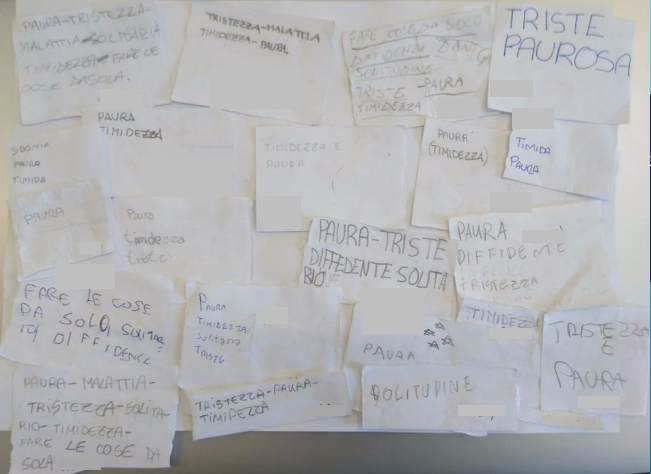 PAURA-TRISTEZZA-
MALATTIA-SOLITARIA
TIMIDEZZA-FARE LE
COSE DA SOLA.
TRISTEZZA-MALATTIA
TIMIDEZZA-PAURA
FARE COSE DA SOLO
SOLITUDINE-
TRISTE-PAURA
TIMIDEZZA
TRISTE
PAUROSA
PAURA
TIMIDEZZA
PAURA
TIMIDA
TIMIDEZZA E
PAURA
PAURA
(TIMIDEZZA)
TIMIDA
PAURA
PAURA
Paura
timidezza
PAURA-TRISTE
DIFFEDENTE SOLITA
RIO
PAURA
TRISTEZZA
TIMIDEZZA
FARE LE COSE
DA SOLO, SOLITAR
PAURA
TIMIDEZZA
Solitaria
TRISTE
PAURA
TRISTEZZA
E
PAURA
PAURA-MALATTIA-
TRISTEZZA-SOLITA-
RIO-TIMIDEZZA-
FARE LE COSE DA
SOLA
TRISTEZZA-PAURA-
TIMIDEZZA
SOLITUDINE